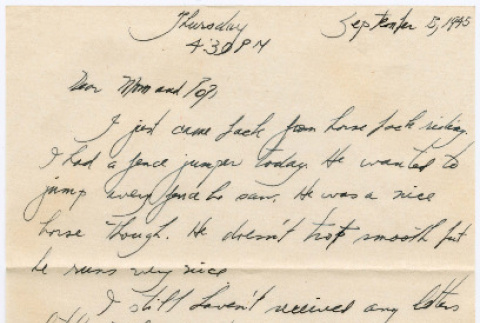 Thursday September 5, 1945
4:30 PM
Dear Mom and Pop,
I just came back from horse back riding.
I had a fence jumper today. He wanted to
jump every fence he saw. He was a nice
horse though. He doesn't trot smooth but
he runs very nice
I still haven't received any letters